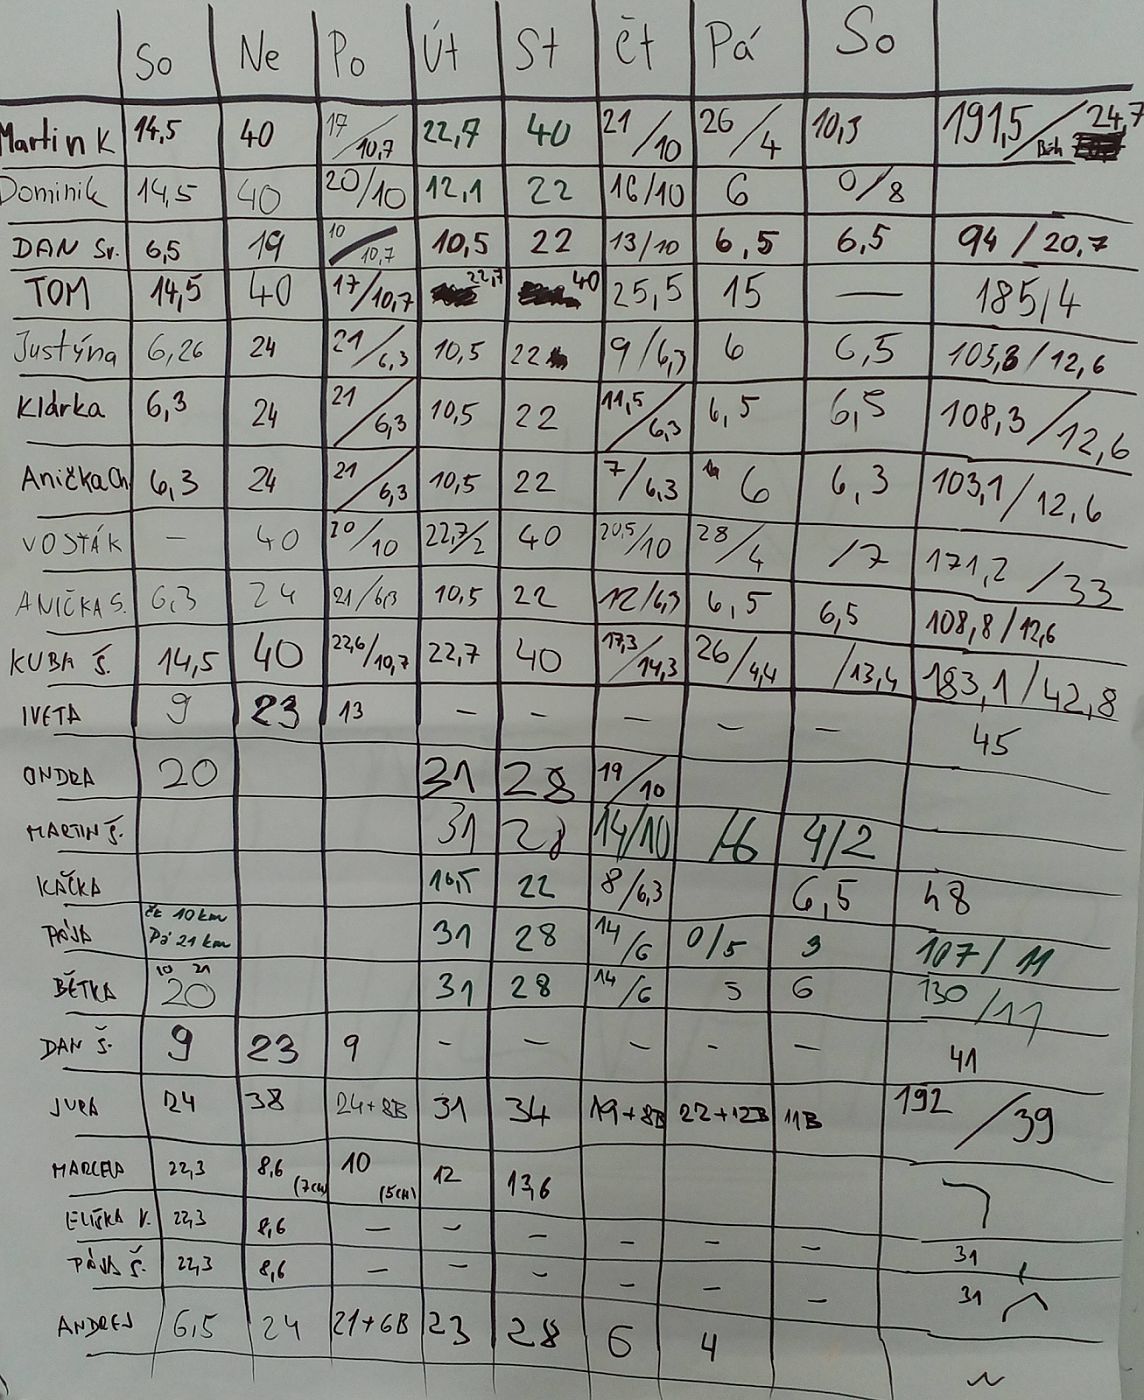 So Ne Po Út St Čt Pá So
Martin K 14,5 40 17/10,7 22,7 40 21/10 26/4 10,3 191,5/24,7 Běh
Dominik 14,5 40 20/10 12,1 22 16/10 6 0/8
DAN Sv. 6,5 19 10/10,7 10,5 22 13/10 6,5 6,5 94/20,7
TOM 14,5 40 17/10,7 22,7 40 25,5 15 — 185/4
Justýna 6,26 24 21/6,3 10,5 22 9/6,3 6 6,5 105,8/12,6
Klárka 6,3 24 21/6,3 10,5 22 11,5/6,3 6,5 6,5 108,3/12,6
Anička Ch 6,3 24 21/6,3 10,5 22 7/6,3 6 6,3 103,1/12,6
VOSŤÁK — 40 20/10 22,7/2 40 20,5/10 28/4 /7 171,2/33
ANIČKA S. 6,3 24 21/6,3 10,5 22 12/6,3 6,5 6,5 108,8/12,6
KUBA Š. 14,5 40 22,6/10,7 22,7 40 17,3/14,3 26/4,4 /13,4 183,1/42,8
IVETA 9 23 13 — — — — — 45
ONDRA 20 31 28 19/10
MARTIN Š. 31 28 14/10 /6 4/2
KAČKA 10,5 22 8/6,3 6,5 48
PÁJA čt 10 km Pá 21 km 31 28 14/6 0/5 3 107/11
BĚTKA 10 21 20 31 28 14/6 5 6 130/17
DAN Š. 9 23 9 — — — — — 41
JURA 24 38 24+8B 31 34 19+8B 22+12B 11B 192/39
MARCELA 22,3 8,6 10 12 13,6
ELIŠKA V. 22,3 8,6 — — — — — 31
PÁJA Š. 22,3 8,6 — — — — — 31
ANDREJ 6,5 24 21+6B 23 28 6 4